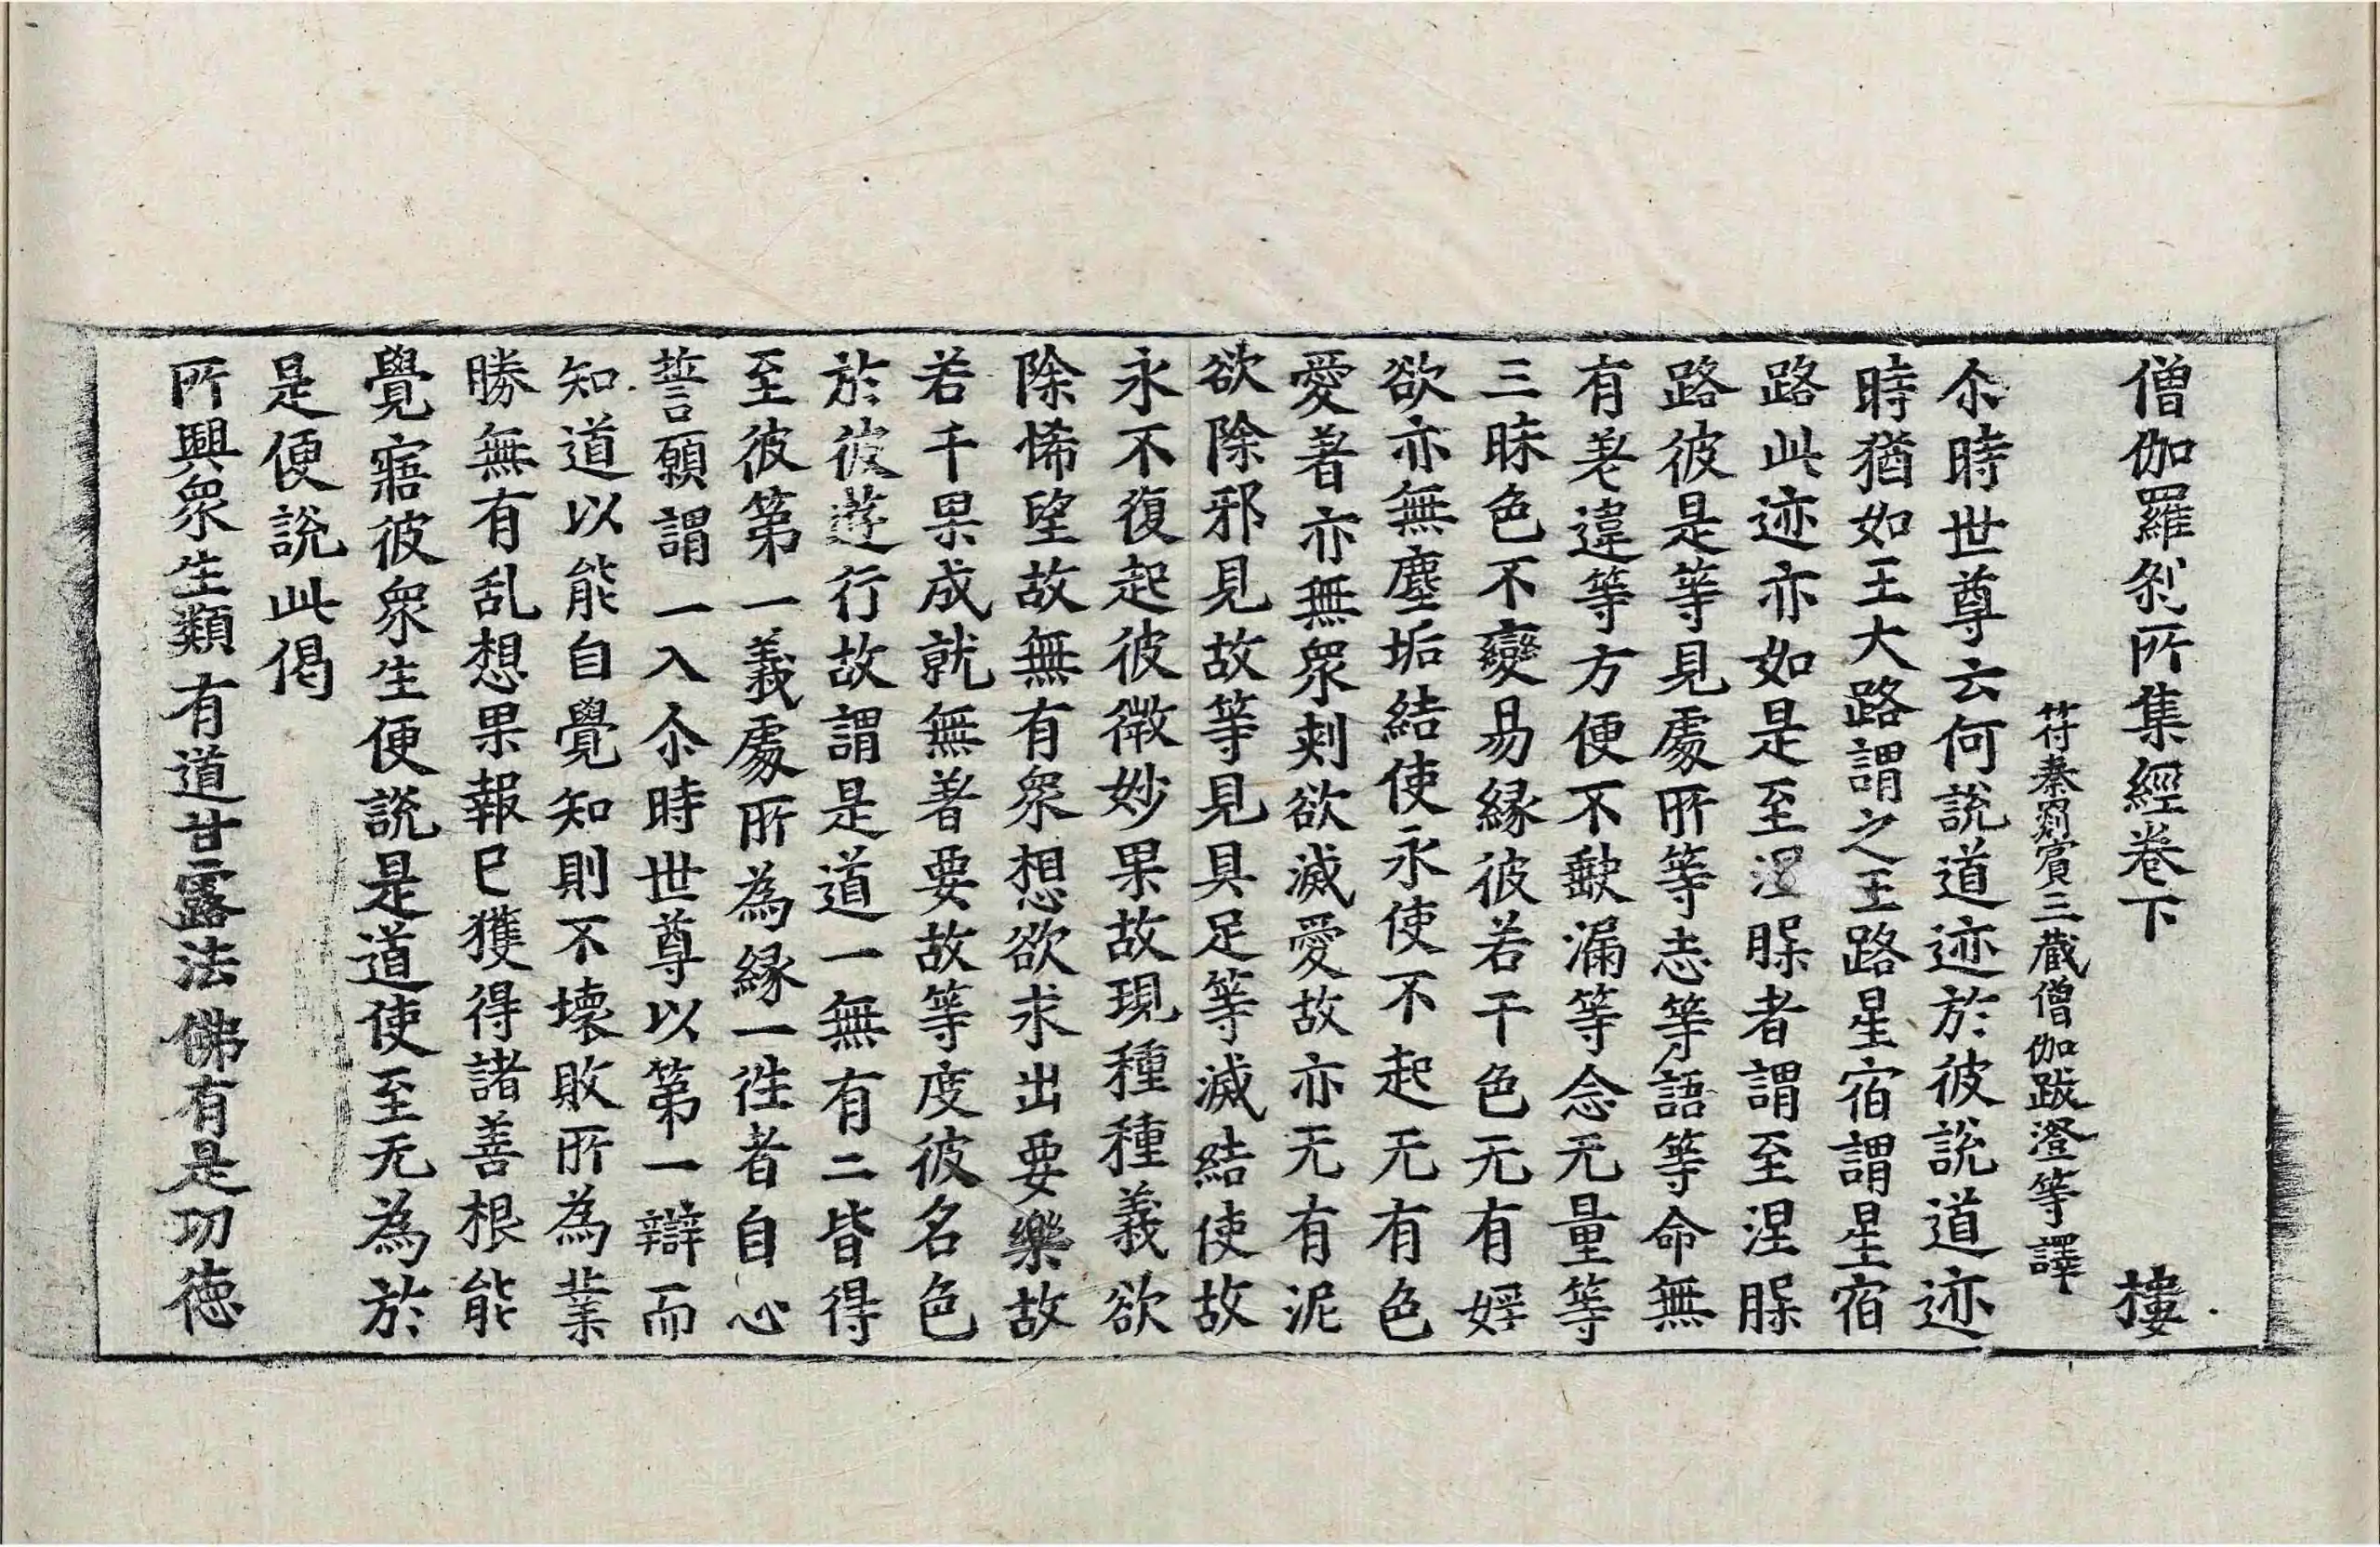 僧伽羅刹所集經卷下 樓
符秦罽賓三藏僧伽跋澄等譯
尒時世尊云何說道迹於彼說道迹
時猶如王大路謂之王路星宿謂星宿
路此迹亦如是至涅槃者謂至涅槃
路彼是等見處所等志等語等命無
有差違等方便不缺漏等念无量等
三昧色不變易緣彼若干色无有婬
欲亦無塵垢結使永使不起无有色
愛著亦無衆刺欲滅愛故亦无有泥
欲除邪見故等見具足等滅結使故
永不復起彼微妙果故現種種義欲
除悕望故無有衆想欲求出要樂故
若干果成就無著要故等度彼名色
於彼遊行故謂是道一無有二皆得
至彼第一義處所為緣一徃者自心
誓願謂一入尒時世尊以第一辯而
知道以能自覺知則不壞敗所為業
勝無有乱想果報已獲得諸善根能
覺寤彼衆生便說是道使至无為於
是便說此偈
所興衆生類 有道甘露法 佛有是功德